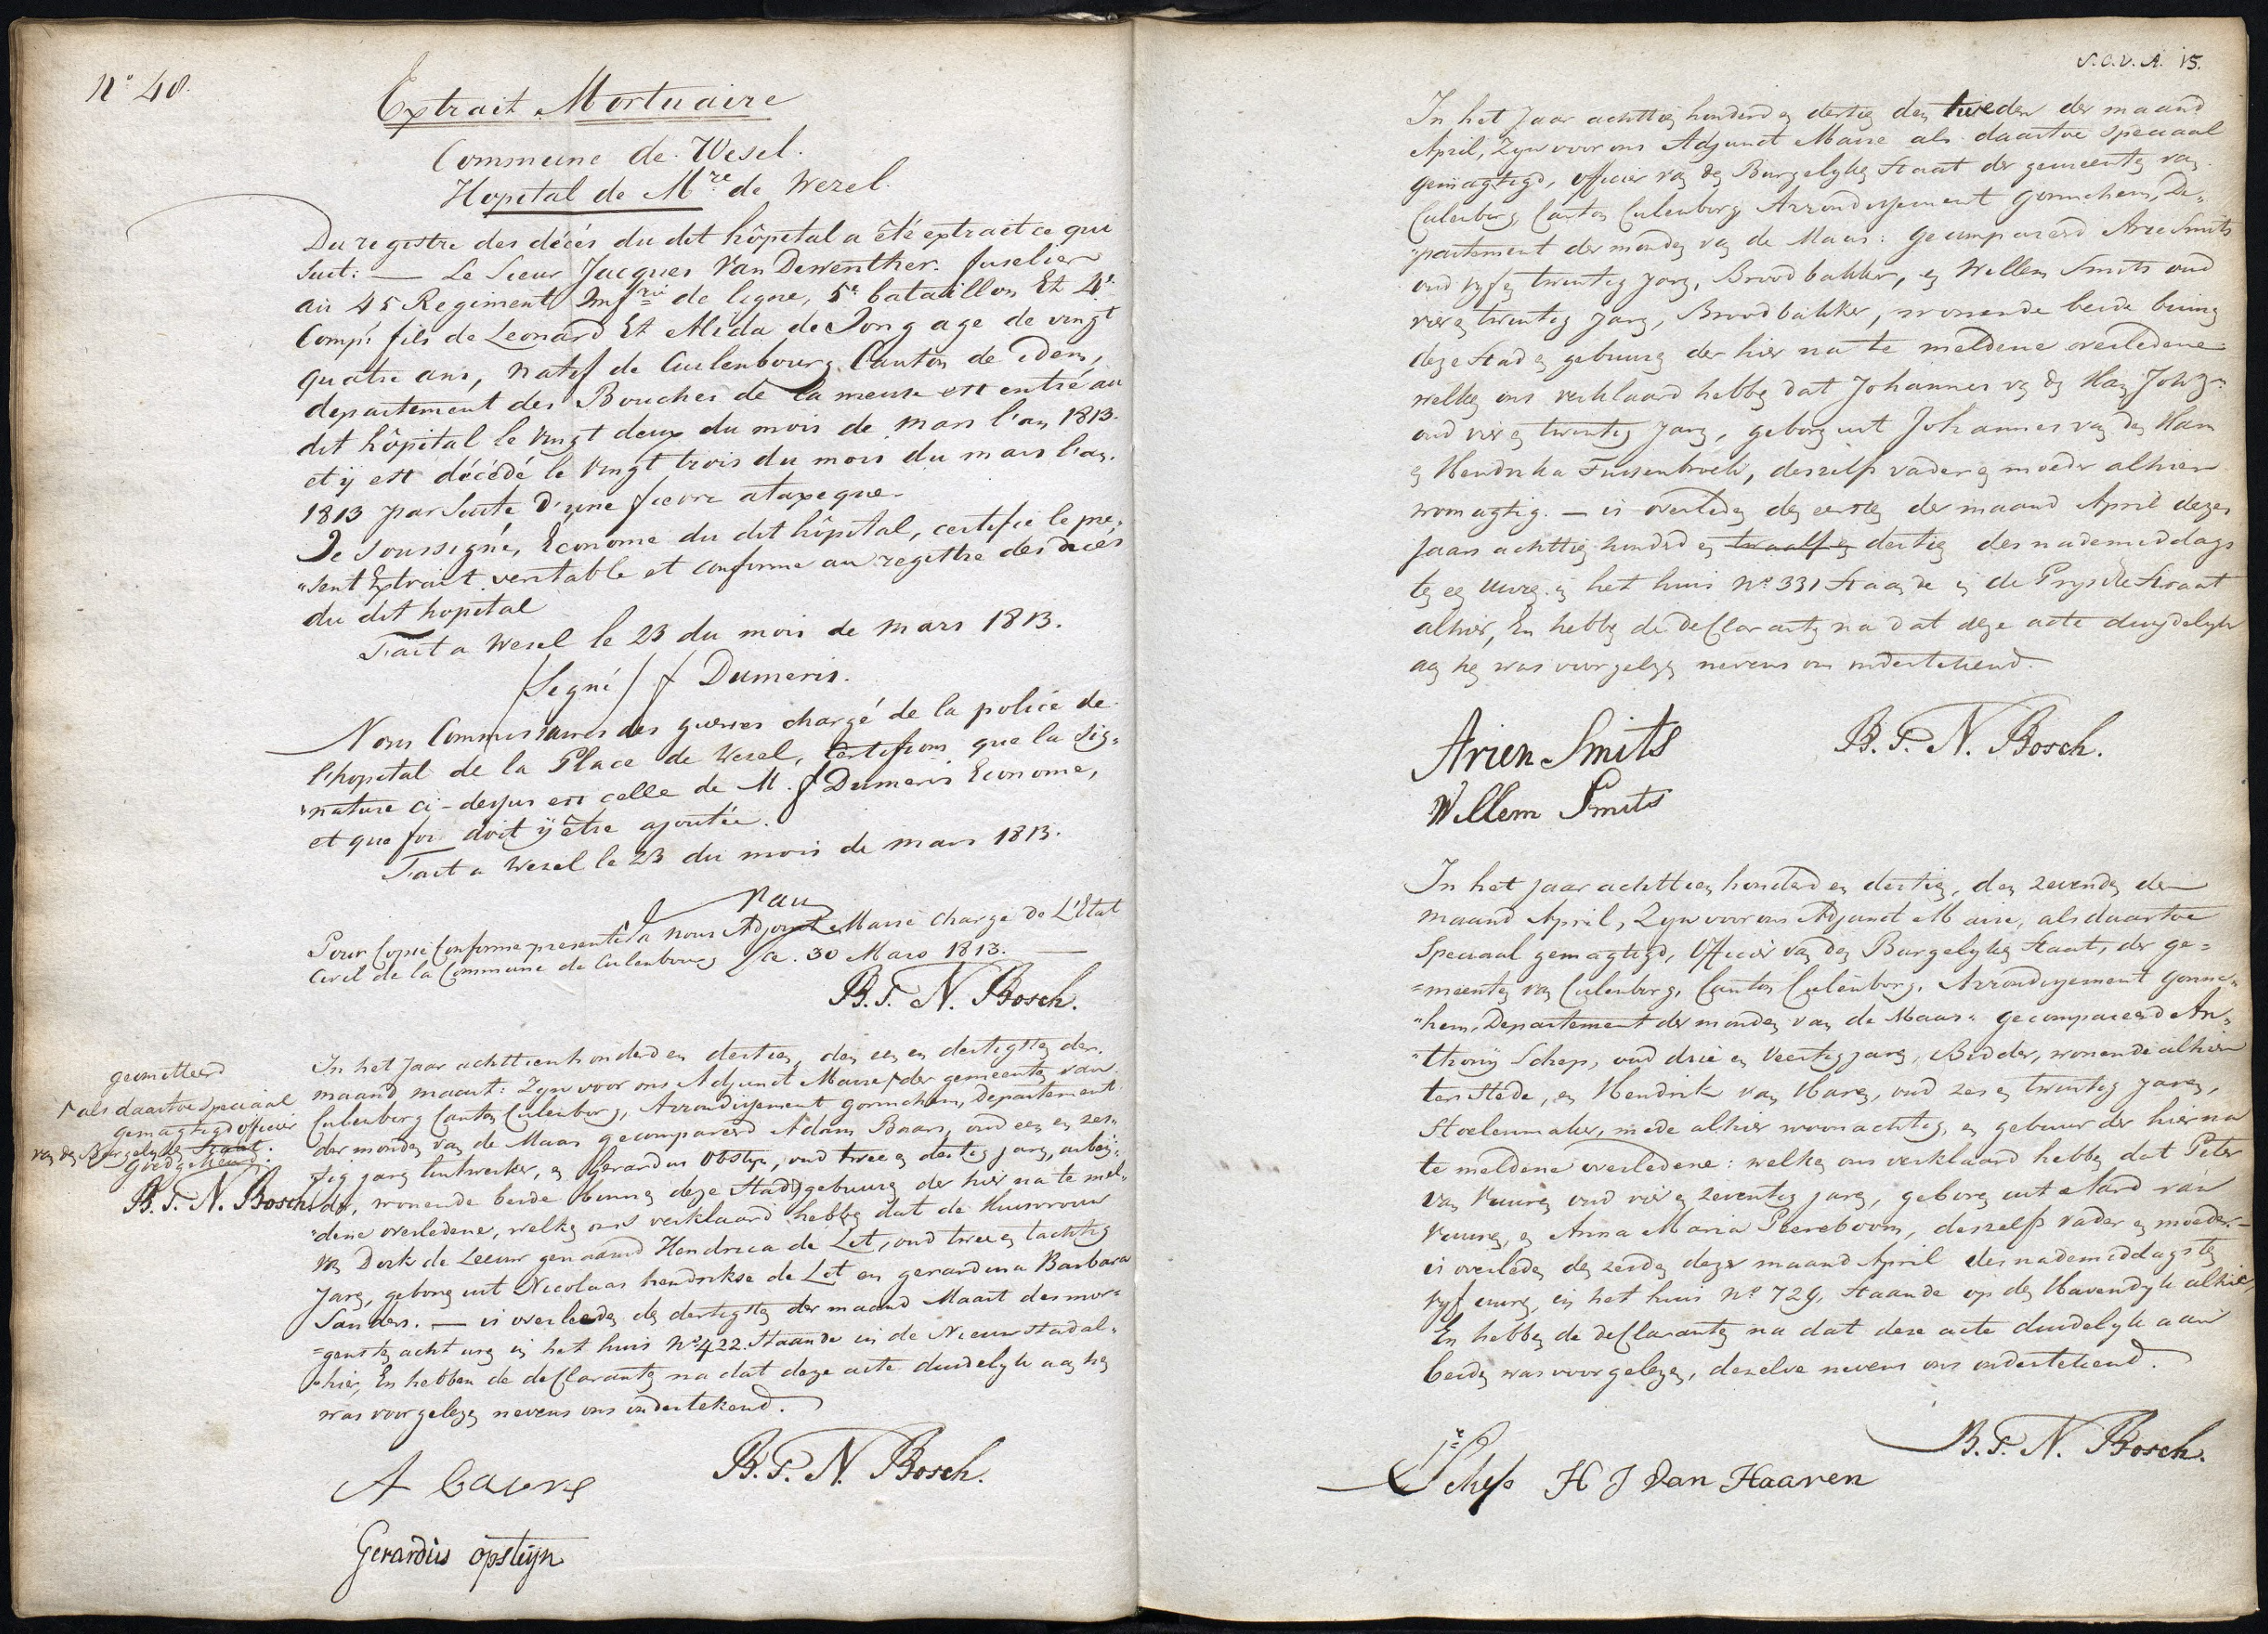 N° 48.
Extrait Mortuaire
Commune de Wesel.
Hopital de M.re de Wezel.
Du registre des décés du dit hôpital a été extrait ce qui
suit: — Le Sieur Jacques Van Dewenther. fuselier
au 45 Regiment Inf.rie de ligne, 5e bataillon Et 4e
Comp.e fils de Leonard Et Alida de Jong age de vingt
quatre ans, natif de Culenbourg Canton de idem,
departement des Bouches de la meuse est entré au
dit hôpital le vingt deux du mois de mars l'an 1813.
et ÿ est décédé le vingt trois du mois du mars l'an.
1813 par suite d'une fievre ataxique.
Je soussigné, Econome du dit hôpital, certifie le pre„
„sent Extrait veritable et conforme au registre des décés
du dit hopital
Fait a Wesel le 23 du mois de mars 1813.
/Signé/ f Dumeris.
Nous Commissaires des guerres chargé de la police de
l'hopital de la Place de Wesel, certifions que la sig„
„nature ci-dessus est celle de M. f Dumeris Econome,
et que foi doit ÿ être ajoutée.
Fait a Wezel le 23 du mois de mars 1813.
Nau
Pour Copie Conforme presentée à nous Adjoint Maire chargé de L'Etat
Civil de la Commune de Culenbourg Ce. 30 Mars 1813.
B. T. N. Bosch.
In het Jaar achttienhonderd en dertien, den een en dertigsten der
maand maart: Zijn voor ons Adjunct Maire, der gemeenten van
Culenborg Canton Culenborg, Arrondissement Gorinchem, Departement
der monden van de Maas gecompareerd Adam Baars, oud een en zes„
tig jaren, en Gerardus Obstyn, oud twee en dertig jaren, arbeij„
der, wonende beide binnen deze Stad gebuuren der hier na te mel„
„dene overledene, welken ons verklaard hebben dat de Huisvrouw
van Derk de Leeuw genaamd Hendrica de Let, oud twee en tachtig
Jaren, geboren uit Nicolaas hendrikse de Let en gerardina Barbara
Sanders. — is overleeden den dertigsten der maand Maart des mor„
„gensten acht uren in het huis N° 422 Staande in de Nieuwstad al„
„hier, En hebben de declaranten na dat deze acte duidelyk aan hen
was voorgelezen nevens ons ondertekend.
geomitteerd
als daartoe speciaal
gemagtigd officier
van den Burgelyken Staat.
goedgekeurd.
B. T. N. Bosch
A baars
B. T. N. Bosch.
Gerardus opsteijn
S.O.V.A. 15.
In het Jaar achttien honderd en dertien den tweeden der maand
April, Zyn voor ons Adjunct Maire als daartoe speciaal
gemagtigd, officier van den Burgelyken Staat der gemeenten van
Culenborg Canton Culenborg Arrondissement Gorinchem, De„
„partement der monden van de Maas: gecompareerd Arie Smits
oud vyf en twintig jaren, Broodbakker, en Willem Smits oud
vier en twintig Jaren, Broodbakker, wonende beide binnen
deze Stad en gebuuren der hier na te meldene overledene:
welken ons verklaard hebben dat Johannes van den Ham Johz:
oud vier en twintig jaren, geboren uit Johannes van den Ham
en Hendrika Fuisenbroek, deszelfs vader en moeder alhier
woonagtig. — is overleden den eersten der maand April dezes
jaars achttien honderd en twaalf en dertien des nademiddags
ten een uuren in het huis N° 331 Staande in de Prysse Straat
alhier, En hebben de declaranten na dat deze acte duydelyk
aan hen was voorgelezen nevens ons ondertekend.
Arien Smits
B. T. N. Bosch.
Willem Smits
In het jaar achttien honderd en dertien, den zevenden der
maand April, Zyn voor ons Adjunct Maire, als daartoe
Speciaal gemagtigd, Officier van den Burgelyken Staat, der ge=
=meenten van Culenborg, Canton Culenborg, Arrondissement Gorinc„
„hem, Departement der monden van de Maas: gecompareerd An„
„thonij Schep, oud drie en Veertig jaren, Bidder, wonende alhier
ter Stede, en Hendrik van Haren, oud zes en twintig jaren,
Stoelenmaker, mede alhier woonachtig, en gebuur der hierna
te meldene overledene: welken ons verklaard hebben dat Peter
van Vuuren oud vier en zeventig jaren, geboren uit Aard van
Vuuren, en Anna Maria Peereboom, deszelfs vader en moeder. —
is overleden den zesden dezer maand April des nademiddagsten
vyf uuren, in het huis N° 729, Staande op den Havendyk alhier,
En hebben de declaranten na dat deze acte duidelyk aan
beiden was voorgelezen, dezelve nevens ons ondertekend.
Schep
H J Van Haaren
B. T. N. Bosch.